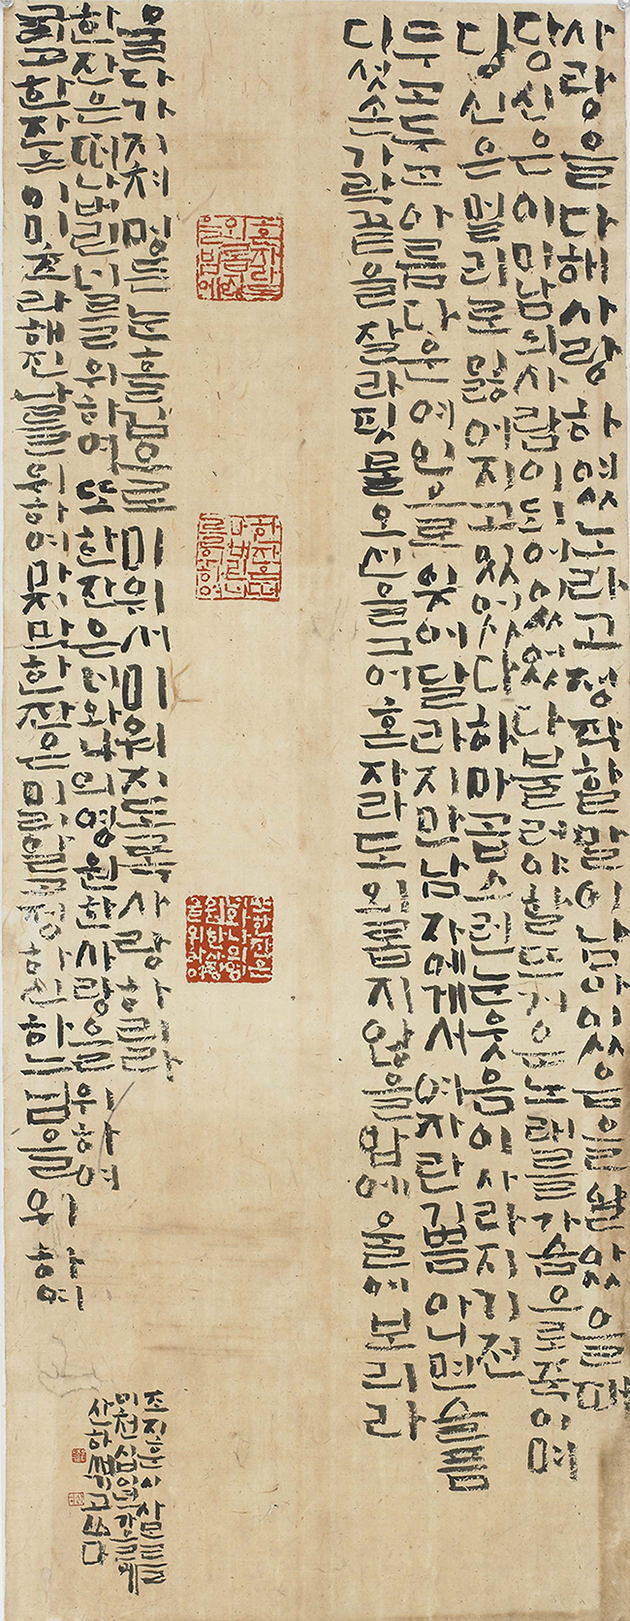 사랑을다해사랑하였노라고정작할말이남아있음을알았을때
당신은이미남의사람이되어있었다불러야할뜨거운노래를가슴으로죽이며
당신은멀리로잃어지고있었다하마곱스런눈웃음이사라지기전
두고두고아름다운여인으로잊어달라지만남자에게서여자란기쁨아니면슬픔
다섯손가락끝을잘라핏물오선을그어혼자라도외롭지않을밤에울어보리라
혼자라도
외롭지않
을밤에
한잔은떠
나버린너
를위하여
또한잔은
너와나의영
원한사랑
을위하여
울다가지쳐멍든눈흘김으로미워서미워지도록사랑하리라
한잔은떠나버린너를위하여또한잔은너와나의영원한사랑을위하여
그리고한잔은이미초라해진나를위하여마지막한잔은미리알고정하신하느님을위하여
조지훈시사모를
이천십일년강릉에
산하새기고쓰다